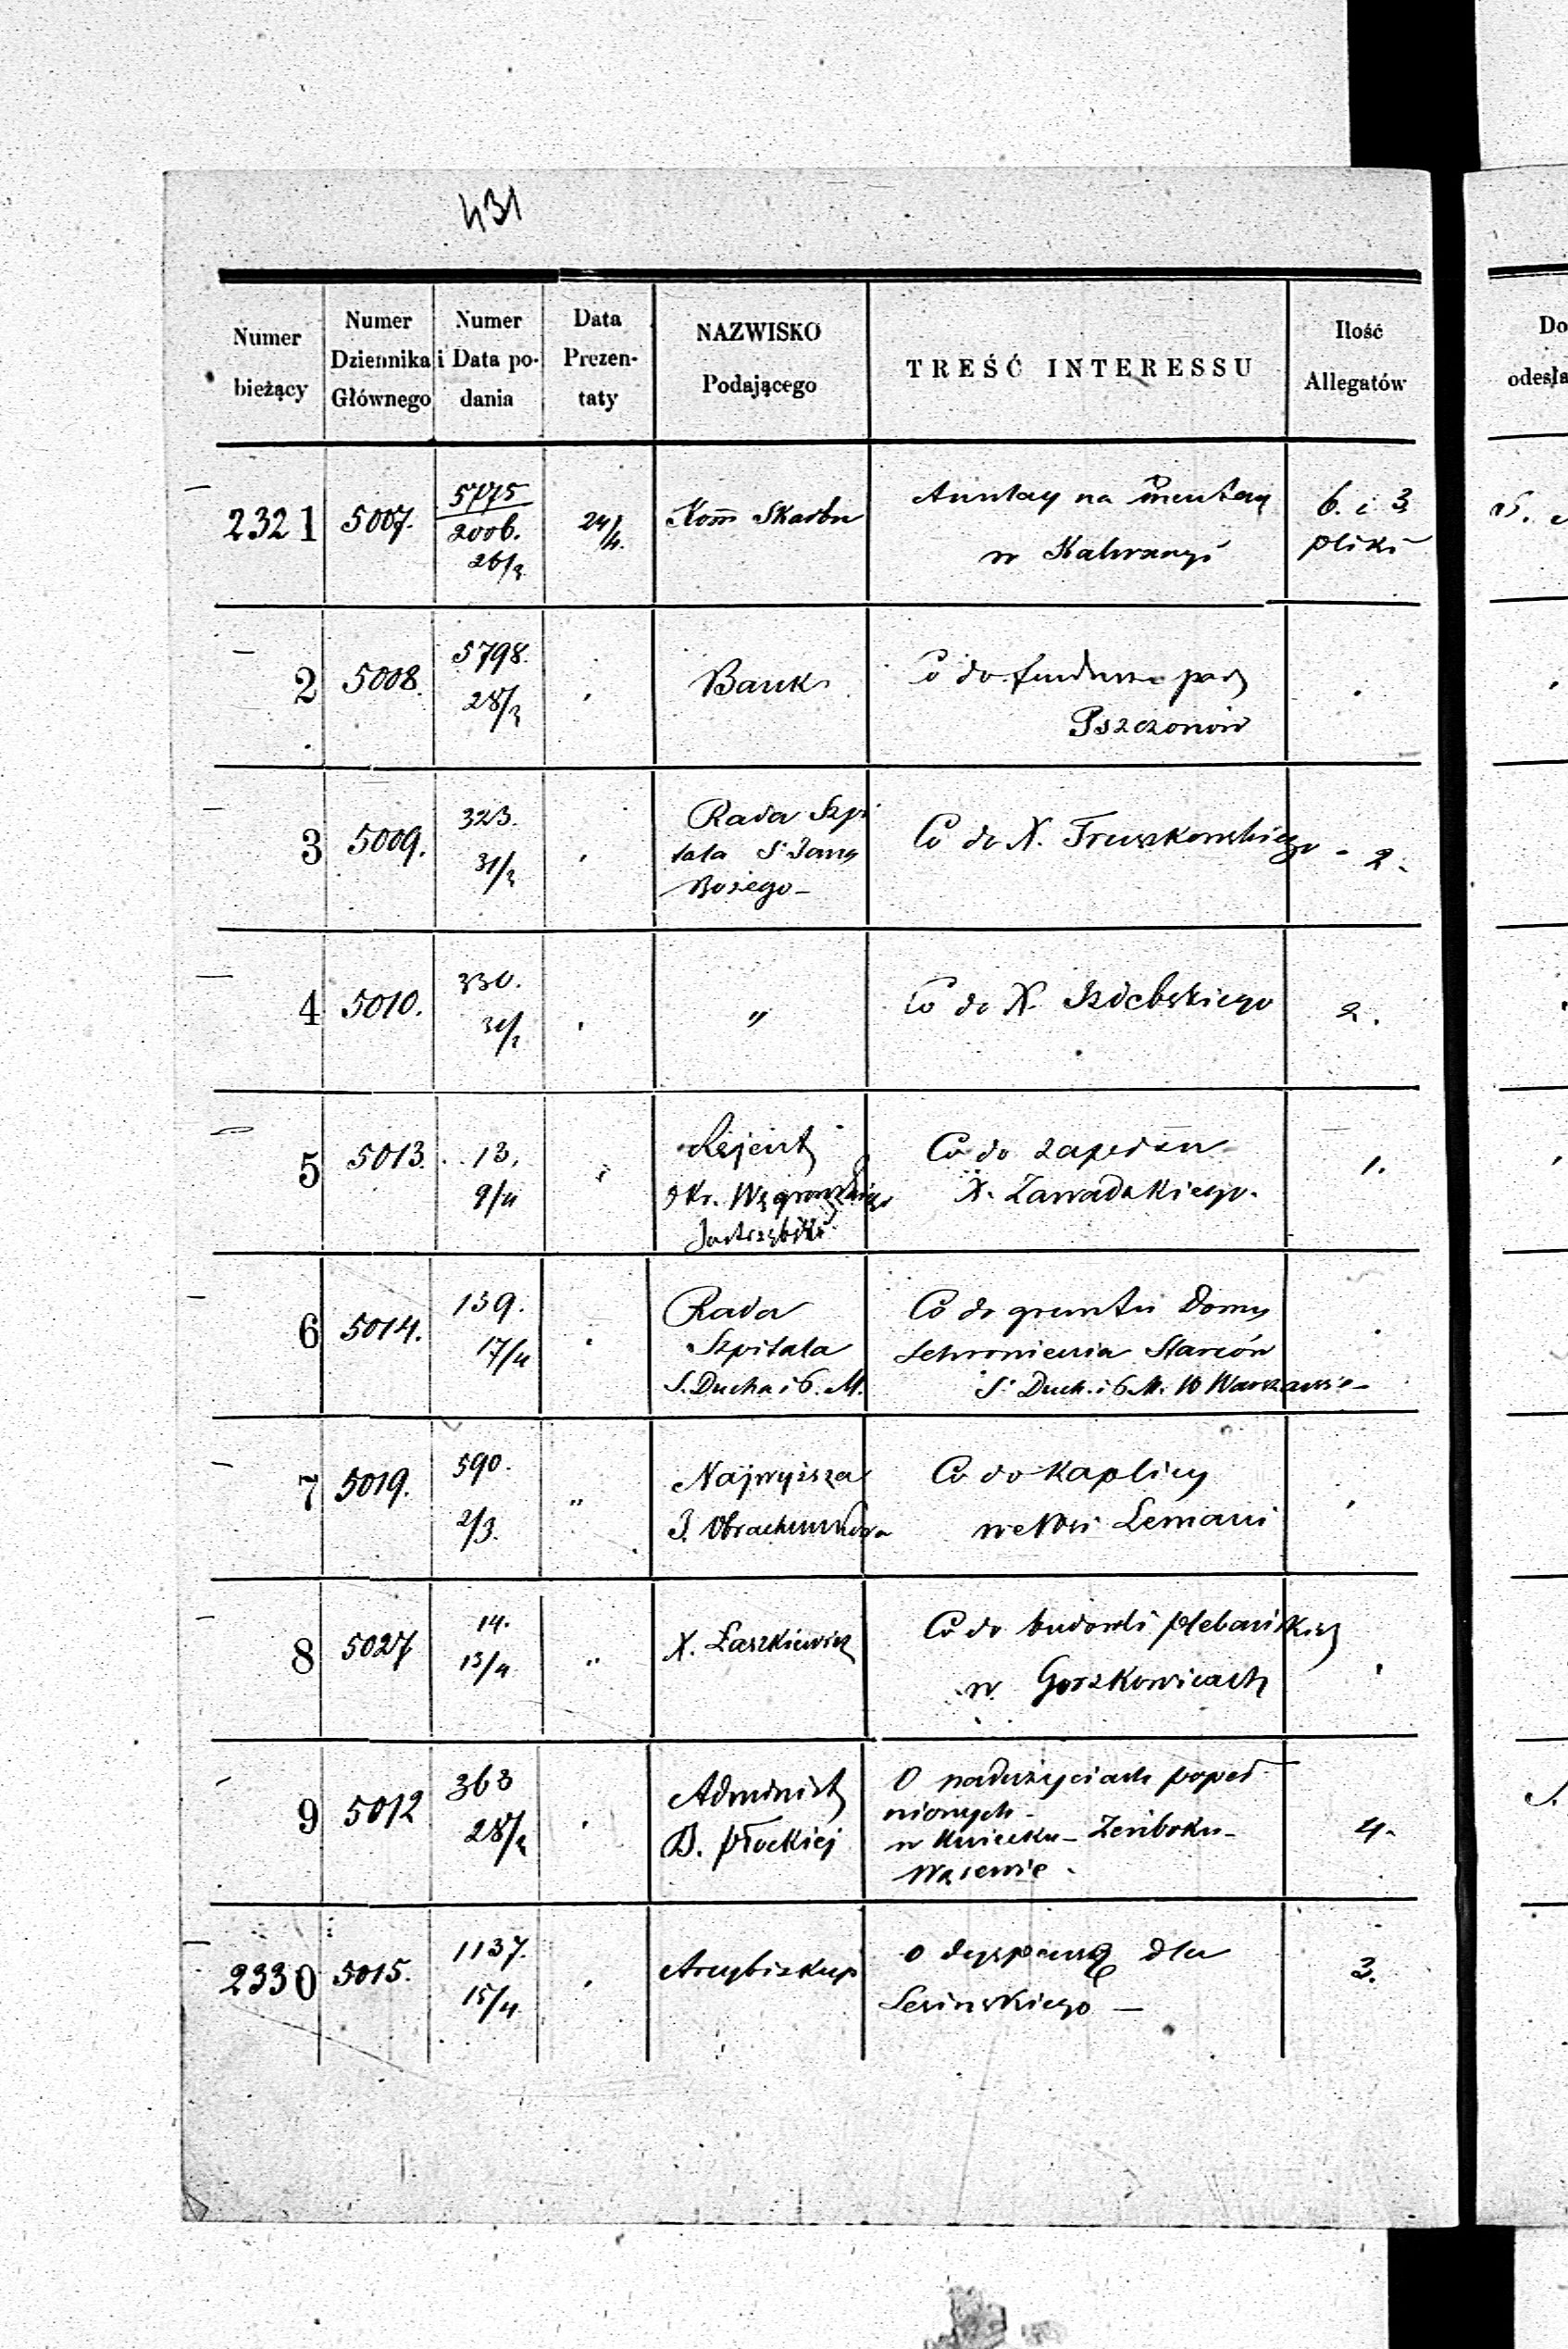 431
Numer bieżący
Numer Dziennika Głównego
Numer i Data podania
Data Prezentaty
NAZWISKO Podającego
TREŚĆ INTERESSU
Ilość Allegatów
Do
odesła
2321 5007. 5775 2006. 26/3 24/4. Kom̄ Skarbu
na
w Kalwaryi
6. i 3
pliki
2 5008. 5798. 28/3 Bank Co do funduszu
Pszczonów
3 5009. 323. 31/3 Rada Szpi
tala S. Jana
Bożego –
Co do X. Truszkowskiego – 2.
4 5010. 330. 31/3 " Co do X. Izdebskiego 2.
5 5013. 13. 9/4 Rejent
Okr. Węgrowskiego
Jastrzębski
Co do zapisu
X. Zawadzkiego.
1.
6 5014. 139. 17/4 Rada
Szpitala
S. Ducha i S. M.
Co do gruntu Domu
schronienia Starców
S. Duch. i S. M. w Warszawie –
7 5019. 590. 2/3. " Najwyższa
I. Obrachunkowa
Co do Kaplicy
we Wsi Lemani
8 5027 14. 13/4 " X. Łaszkiewicz
Co do budowli plebańskiej
w Gorzkowicach
9 5012 363 28/3 Administ
D. Płockiej
O nadużyciach popeł
nionych
w – Zeńboku –
Wąsewie.
4.
2330 5015. 1137. 15/4 Arcybiskup
o dyspensę dla
Lesińskiego –
3.